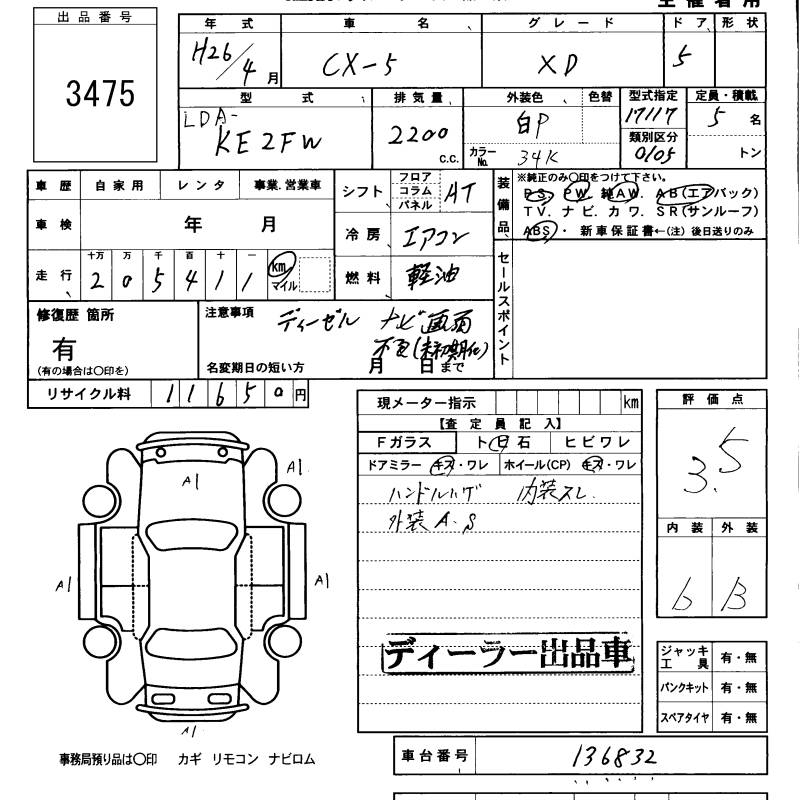 出品番号
3475
年式 車名 グレード ドア 形状
H26/4月 CX-5 XD 5
型式 排気量 外装色 色替 型式指定 定員・積載
LDA-
KE2FW 2200 c.c. 白P 17117 5名
カラーNo. 34K 類別区分 0105 トン
車歴 自家用 レンタ 事業.営業車
車検 年 月
走行 十万 万 千 百 十 一
2 0 5 4 1 1 km マイル
シフト フロア コラム パネル AT
冷房 エアコン
燃料 軽油
装備品
※純正のみ〇印をつけて下さい。
PS. PW. 純AW. AB(エアバック)
TV. ナビ. カワ. SR(サンルーフ)
ABS・ 新車保証書←(注) 後日送りのみ
セールスポイント
修復歴 箇所
有
(有の場合は〇印を)
注意事項 ディーゼル ナビ画面
不良(未初期化)
名変期日の短い方 月 日まで
リサイクル料 11650円
現メーター指示 km
【査定員記入】
Fガラス ト日石 ヒビワレ
ドアミラー キズ・ワレ ホイール(CP) キズ・ワレ
ハンドルハゲ 内装スレ
外装A.S
ディーラー出品車
評価点
3.5
内装 外装
b B
ジャッキ工具 有・無
パンクキット 有・無
スペアタイヤ 有・無
A1
A1
A1
A1
A1
事務局預り品は〇印 カギ リモコン ナビロム
車台番号 136832